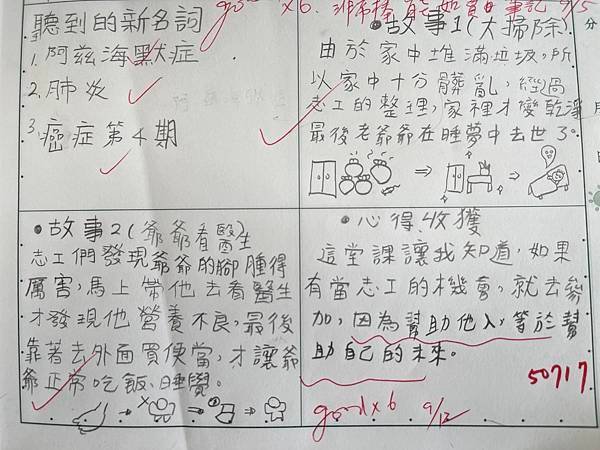 good x6. 非常棒
9/5
分
聽到的新名詞
1. 阿茲海默症
2. 肺炎
3. 癌症第4期
•故事1(大掃除)
由於家中堆滿垃圾,所
以家中十分髒亂,經過
志工的整理,家裡才變乾淨
最後老爺爺在睡夢中去世了。
•故事2(爺爺看醫生
志工們發現爺爺的腳腫得
厲害,馬上帶他去看醫生
才發現他營養不良,最後
靠著去外面買便當,才讓爺
爺正常吃飯、睡覺。
•心得收獲
這堂課讓我知道,如果
有當志工的機會,就去參
加,因為幫助他人,等於幫
助自己的未來。
50717
good x6 9/12